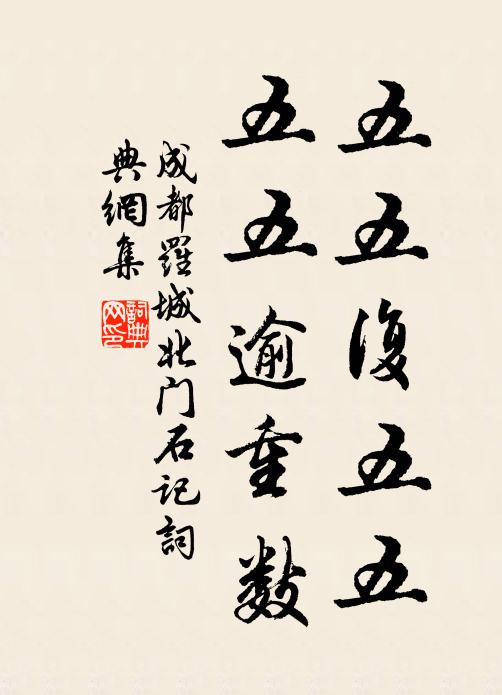 五五復五五
五五逾重數
成都羅城北门石记詞
典網集
詞典
网印